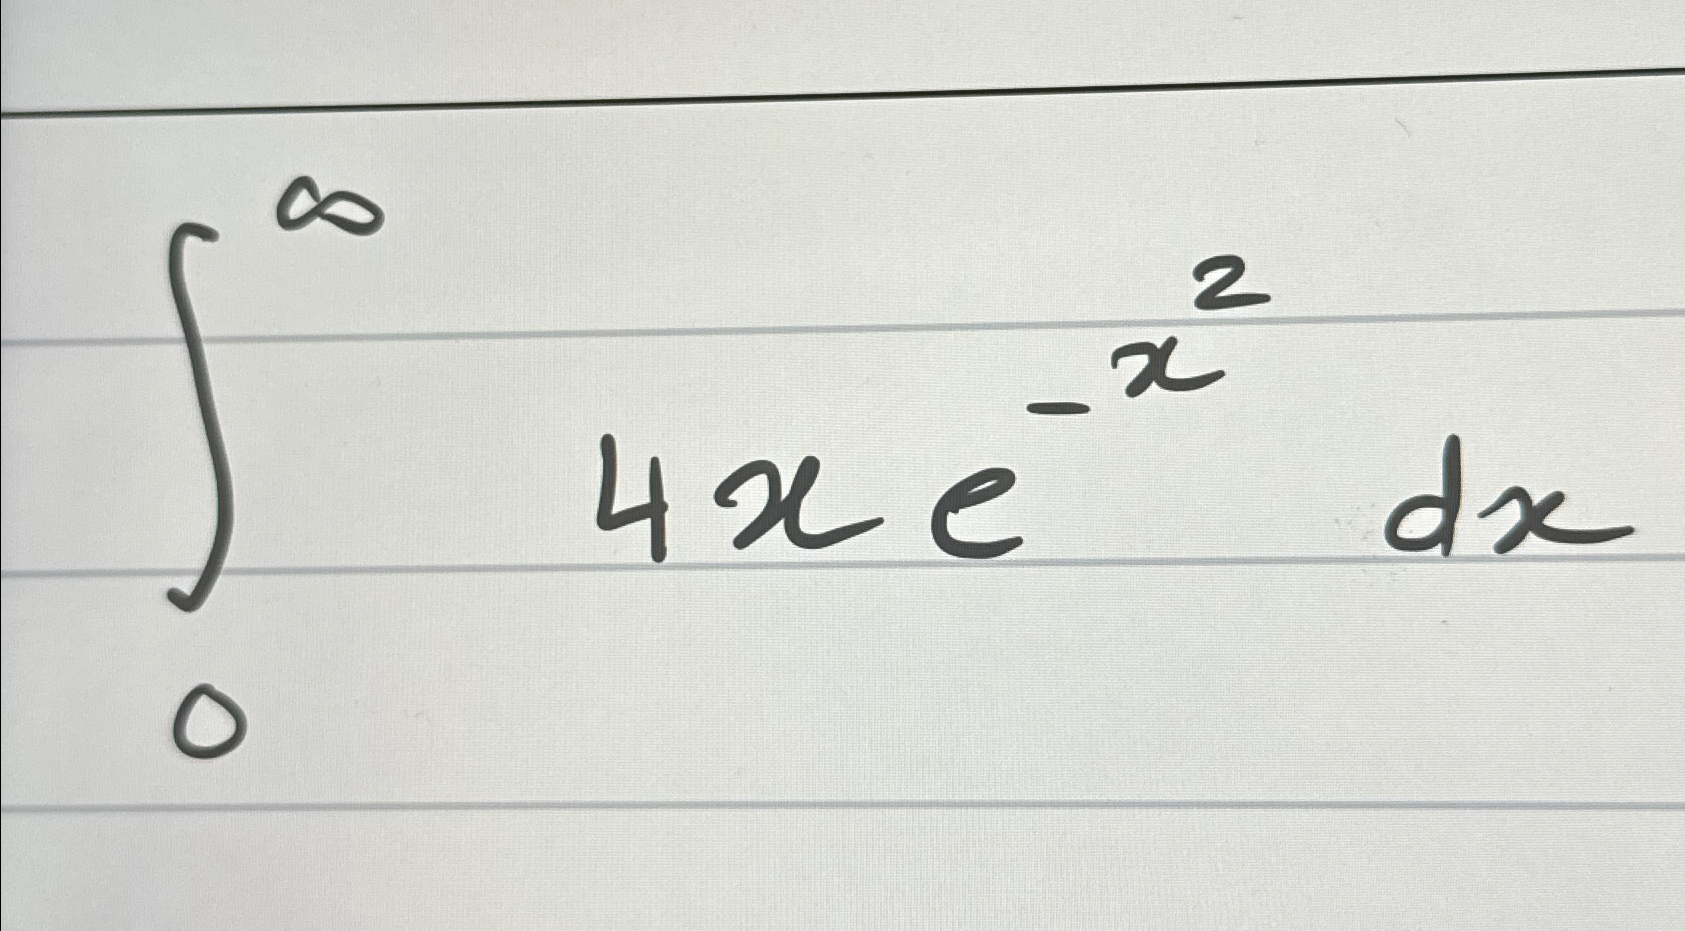 ∫₀^∞ 4x e^{-x^2} dx